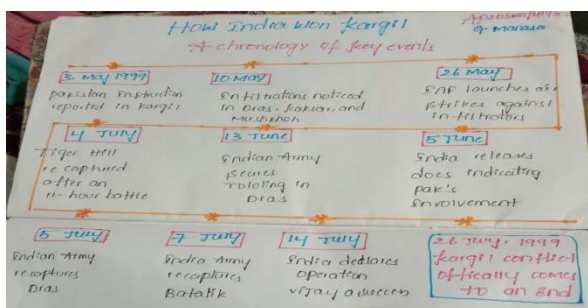 How India won Kargil
A chronology of key events
G. Manasa
3 May 1999
Pakistan Instruction
reported in Kargil
10 May
Infiltrations noticed
in Dras, Kaksar, and
Mushkoh
26 May
IAF launches air
strikes against
infiltrators
4 July
Tiger Hill
recaptured
after an
11-hour battle
13 June
Indian Army
secures
Tololing in
Dras
5 June
India releases
docs indicating
pak's
Involvement
5 July
Indian Army
recaptures
Dras
7 July
India Army
recaptures
Batalik
14 July
India declares
Operation
vijay a
26 July, 1999
Kargil conflict
offically comes
TO an End